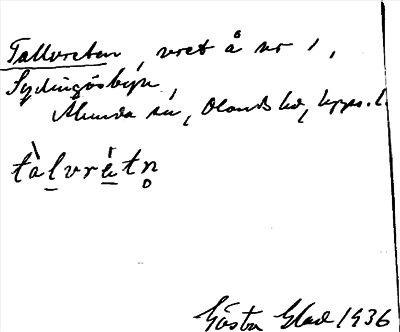 Tallvreten, vret å nr 1,
Sydingösbyn,
Åkunda sn, Olands hd, Upps. l.
tàlvrétn
Gösta Glad 1936